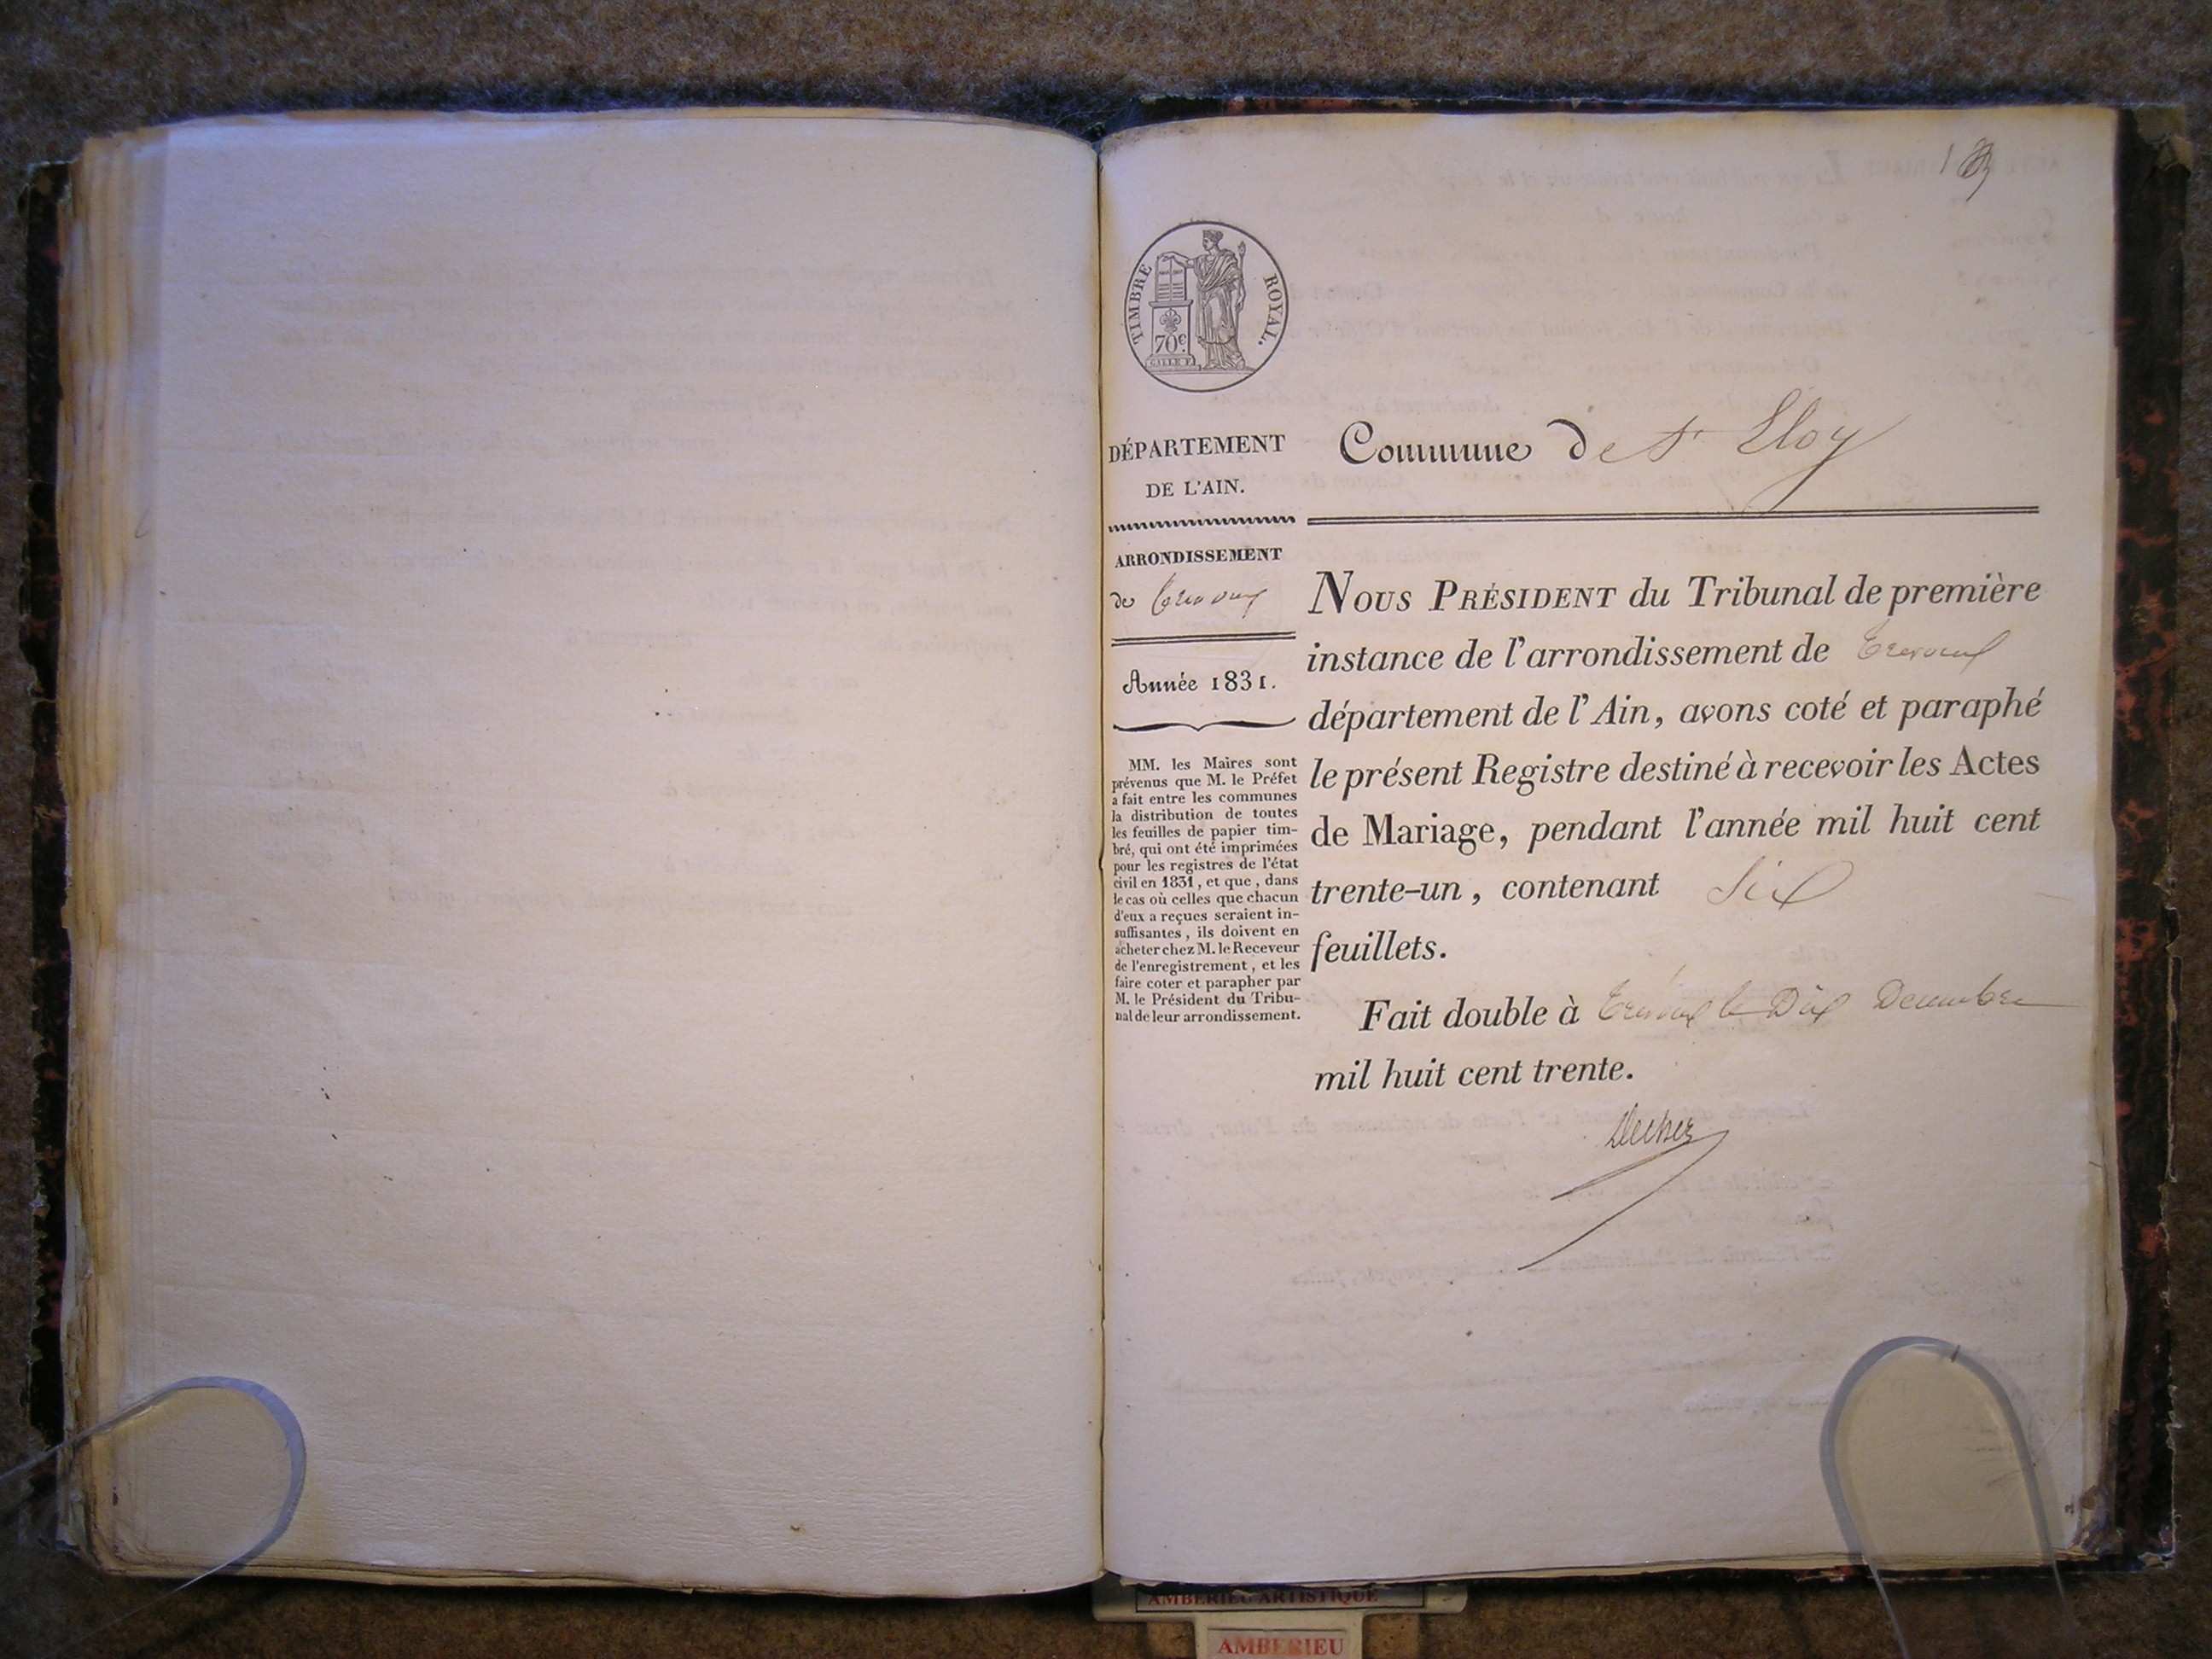 TIMBRE ROYAL.
70c
GALLE F.
DÉPARTEMENT
DE L'AIN.
ARRONDISSEMENT
de Trevoux
Année 1831.
MM. les Maires sont
prévenus que M. le Préfet
a fait entre les communes
la distribution de toutes
les feuilles de papier tim-
bré, qui ont été imprimées
pour les registres de l'état
civil en 1831, et que, dans
le cas où celles que chacun
d'eux a reçues seraient in-
suffisantes, ils doivent en
acheter chez M. le Receveur
de l'enregistrement, et les
faire coter et parapher par
M. le Président du Tribu-
nal de leur arrondissement.
Commune de St Eloy
NOUS PRÉSIDENT du Tribunal de première
instance de l'arrondissement de Trevoux
département de l'Ain, avons coté et paraphé
le présent Registre destiné à recevoir les Actes
de Mariage, pendant l'année mil huit cent
trente-un, contenant Six
feuillets.
Fait double à Trévoux le Dix Decembre
mil huit cent trente.
AMBERIEU ARTISTIQUE
AMBERIEU